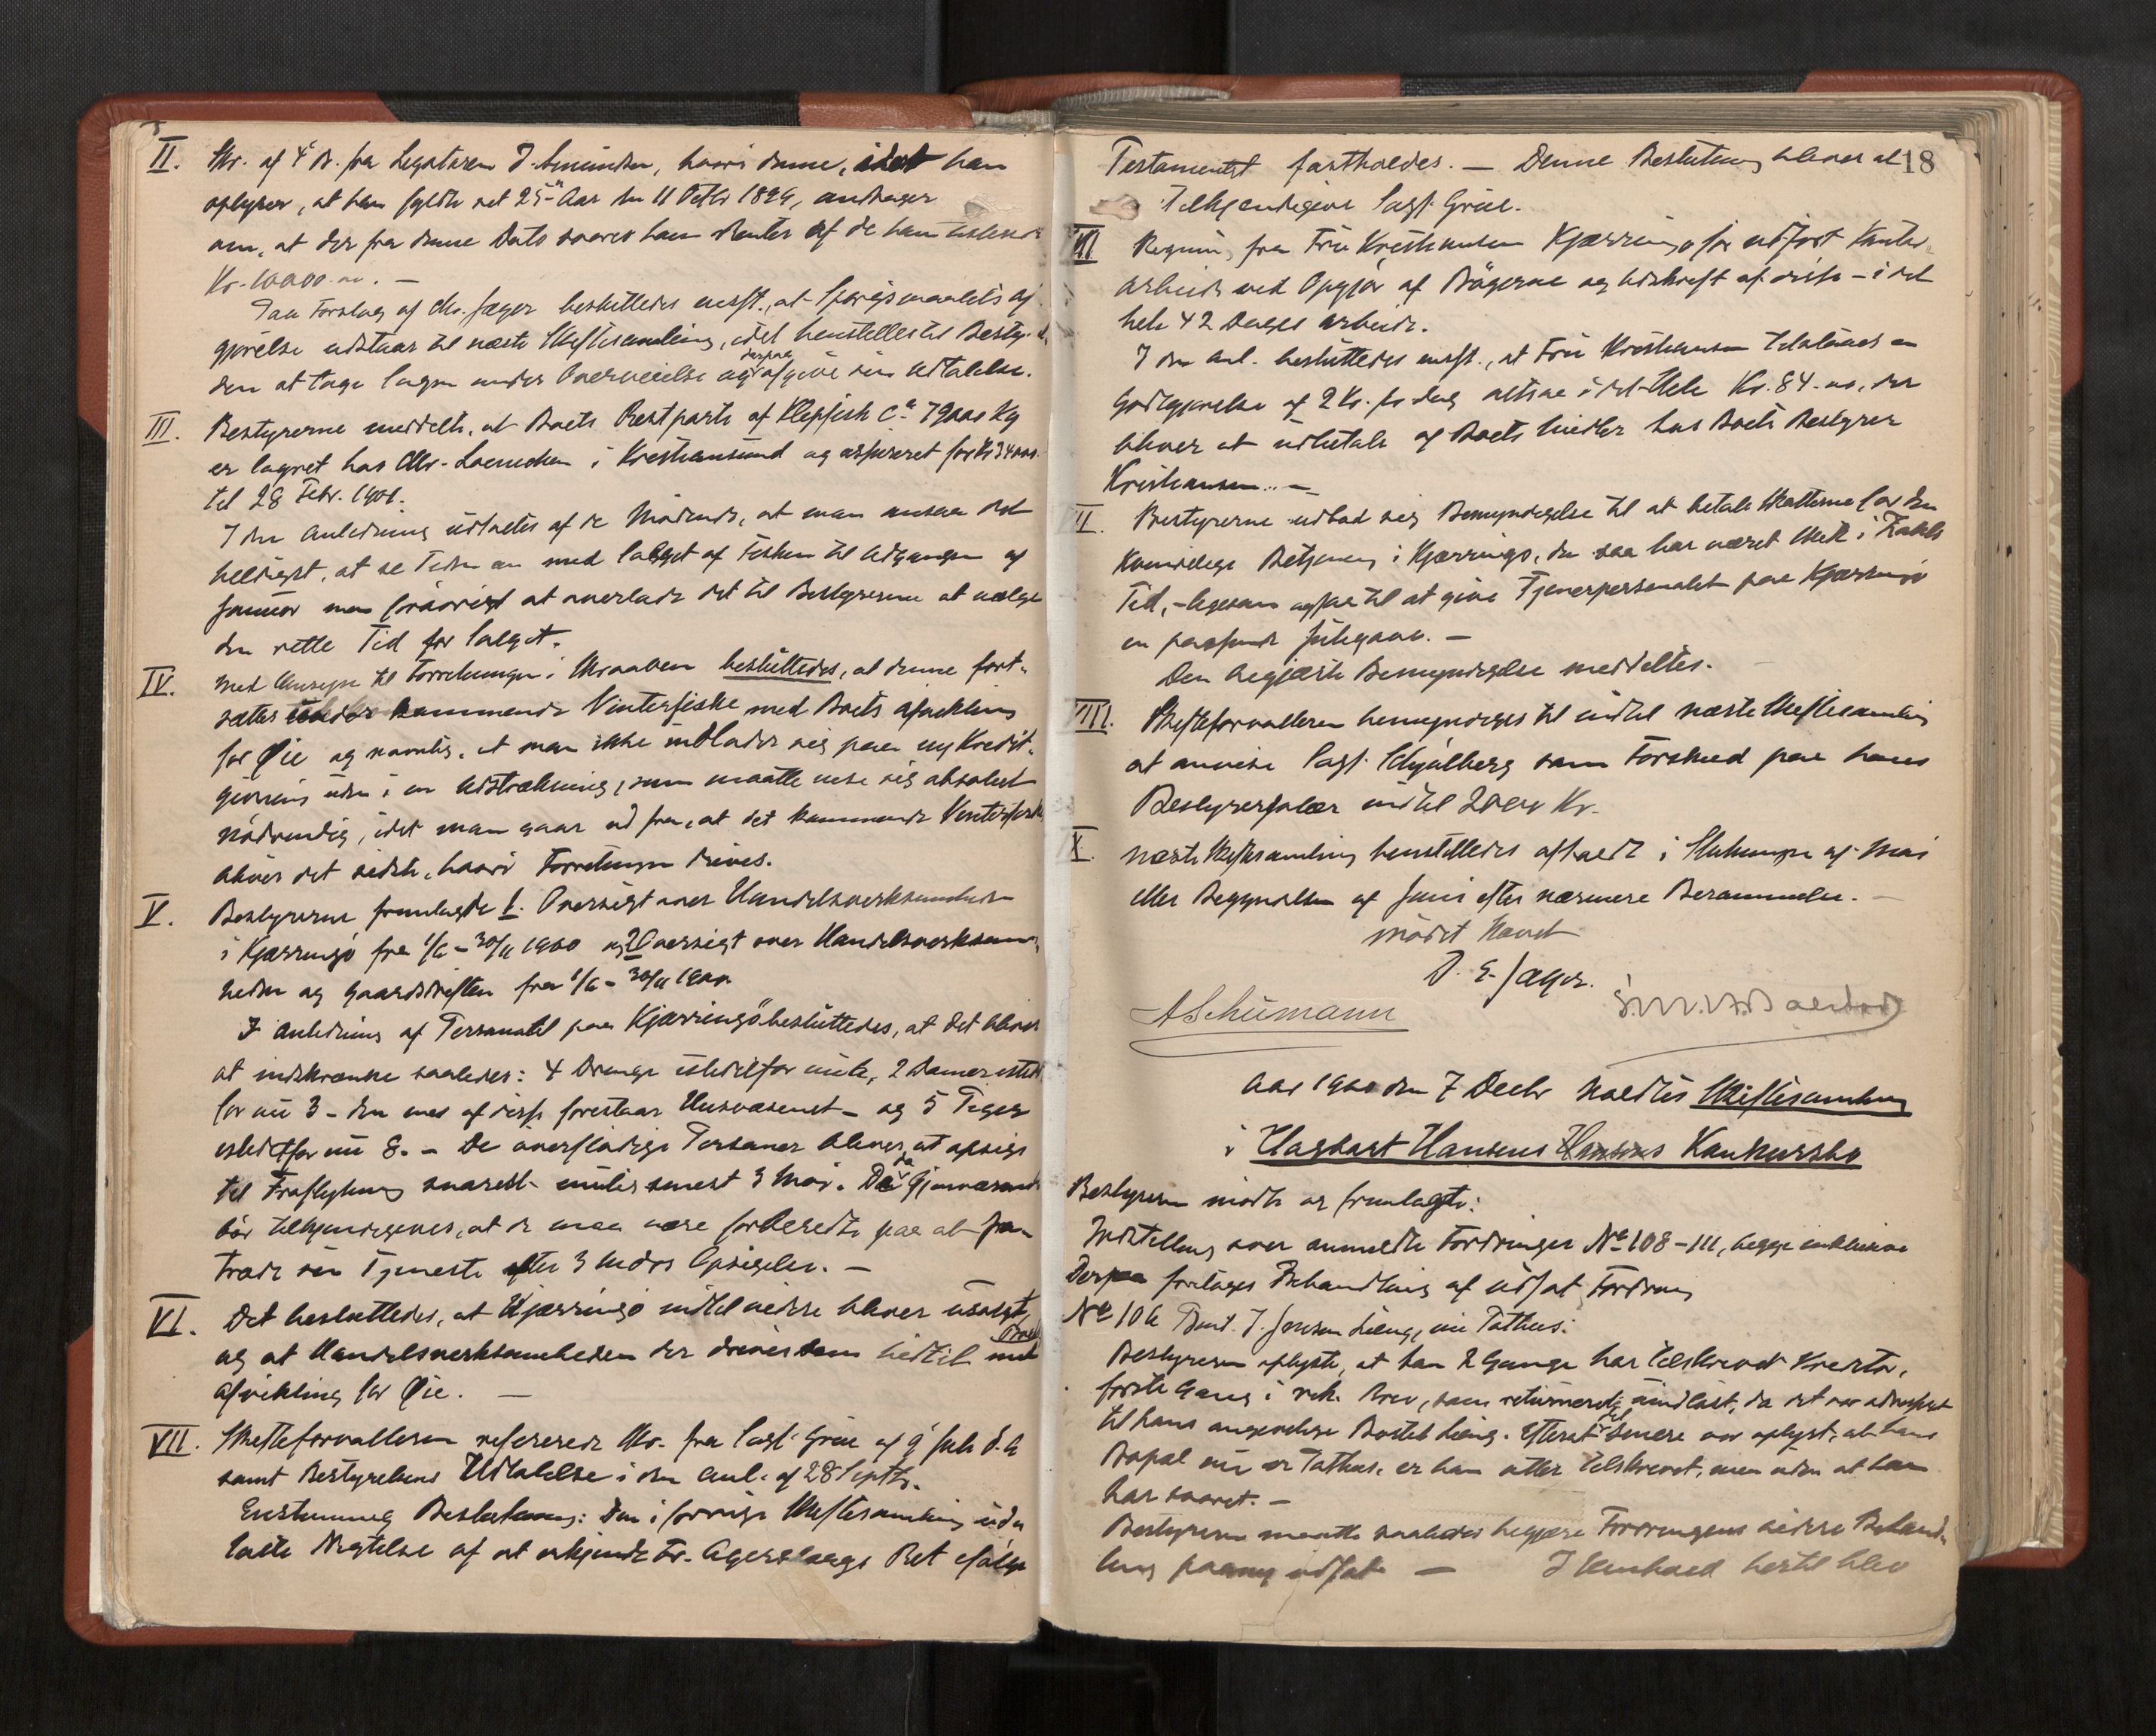 II. Skr. af 4 ds. fra Legataren J. Amundsen, hvori denne, idet han
oplyser, at han fyldte sit 25de Aar den 11 Octbr 1899, andrager
om, at der fra denne Dato svares ham Renter af de ham
Kr. 10000.00. —
Paa Forslag af Skr. Jæger besluttedes enst., at Spørgsmaalets af-
gjørelse udstaar til næste Skiftesamling, idet henstilles til Besty-
den at tage Sagen under Overveielse og derpaa afgive sin Udtalelse.
III. Bestyrerne meddelte, at Boets Restparti af Klipfisk ca 79000 Kg
er lagret hos Loennechen i Kristiansund og assureret for Kr 34000
til 28 Febr. 1901.
I den Anledning udtaltes af de Mødende, at man ansaa det
heldigst, at se Tiden an med Salget af Fisken til Udgangen af
Januar men forøvrigt at overlade det til Bestyrerne at vælge
den rette Tid for Salget.
IV. Med Hensyn til Forretningen i besluttedes, at denne fort-
sættes kommende Vinterfiske med Boets afvikling
for Øie og navnlig, at man ikke indlader sig paa ny Kredit-
givning uden i en Udstrækning, som maatte vise sig absolut
nødvendig, idet man gaar ud fra, at det kommende Vinterfiske
bliver det sidste, hvori Forretningen drives.
V. Bestyrerne fremlagde 1. Oversigt over Handelsvirksomheden
i Kjærringø fra 1/6 - 30/11 1900 og 2 Oversigt over Handelsvirksom-
heden og Gaardsdriften fra 1/6 - 30/11 1900.
I Anledning af Personalet paa Kjærringø besluttedes, at det bliver
at indskrænke saaledes: 4 Drenge istedetfor 2 Damer istedet
for nu 3 - den ene af disse forestaar Husvæsenet - og 5 Piger
istedetfor nu 8. - De overflødige Personer bliver at opsige
til Fraflytning snarest muligt senest 3 Mdr. De Gjenværende
bør tilkjendegives, at de maa være forberedte paa at fra-
træde sin Tjeneste efter 3 Mdrs Opsigelse. —
VI. Det besluttedes, at Kjærringø indtil videre bliver usolgt,
og at Handelsvirksomheden der drives som hidtil med Boets
afvikling for Øie. —
VII. Skifteforvalteren refererede Skr. fra Sagf. Grüe af 9 Juli d. A
samt Bestyrelsens Udtalelse i den Anl. af 28 Septbr.
Enstemmig Beslutning: Den i forrige Skiftesamling
Nægtelse af at erkjende Fr. Agerskaags Ret ifølge
18
Testamentet fastholdes. — Denne Beslutning bliver at
Tilkjendegive Sagf. Grüe.
VIII Regning fra Fru Kristiansen Kjærringø for udført Kontor-
arbeide ved Opgjør af Bøgerne og Udskrift af disse - i det
hele 42 Dages arbeide.
I den Anl. besluttedes enst., at Fru Kristiansen tilstaaes en
Godtgjørelse af 2 Kr. pr Dag altsaa i det Hele Kr. 84.00, der
bliver at udbetale af Boets Midler hos Boets Bestyrer
Kristiansen. —
Bestyrerne udbad sig Bemyndigelse til at betale Skatterne for den
kvindelige Betjening i Kjærringø, da saa har været Skik i Zahls
Tid, - ligesom ogsaa til at give Tjenerpersonalet paa Kjærringø
en passende Julegave. —
Den begjærte Bemyndigelse meddeltes.
Skifteforvalteren bemyndiges til indtil næste Skiftesamling
at anvise Sagf. Schjølberg som Forskud paa hans
Bestyrersalær indtil 2000 Kr.
X. Næste Skiftesamling henstilledes afholdt i Slutningen af Mai
eller Begyndelsen af Juni efter nærmere Berammelse. —
Mødet Hævet
D. E. Jæger.
A Schümann
Aar 1900 den 7 Decbr holdtes Skiftesamling
i Hagbart Hansens Konkursbo
Bestyreren mødte og fremlagte:
Indstilling over anmeldte Fordringer No 108-111, begge inklusive
Derpaa foretoges Behandling af udsat Fordring
No 106 J. Jensen Liëng, nu Tathus:
Bestyreren oplyste, at han 2 Gange har tilskrevet Kreditor,
første Gang i rek. Brev, som returneredes uindløst, da det var adresseret
til hans angivelige Bosted Liëng. Efterat det senere var oplyst, at hans
Bopæl nu er Tathus, er han atter tilskrevet, men uden at han
har svaret. —
Bestyreren maatte saaledes begjære Fordringens videre Behand-
ling paany udsat — I Henhold hertil blev